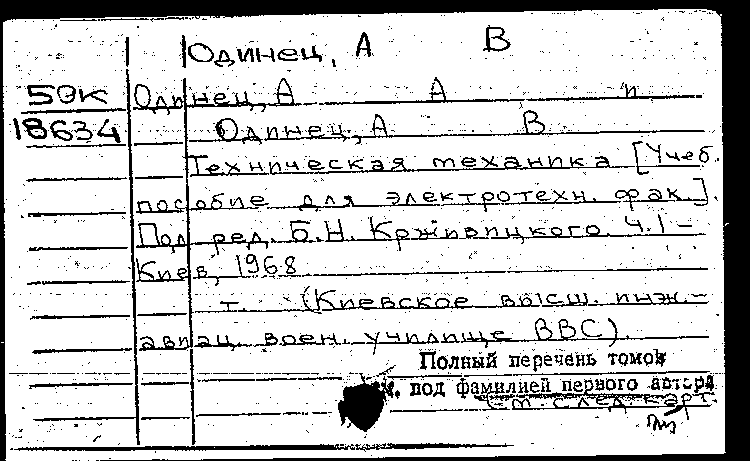 Одинец, А В
59К Одинец, А А п
18634 Одинец, А В
Техническая механика [Учеб.
пособие для электротехн. фак.].
Под ред. Б.Н. Крживицкого. Ч.1 –
Киев, 1968
т. (Киевское высш. инж.-
авиац. воен. училище ВВС).
Полный перечень томов
см. под фамилией первого автора
см. след. карт.